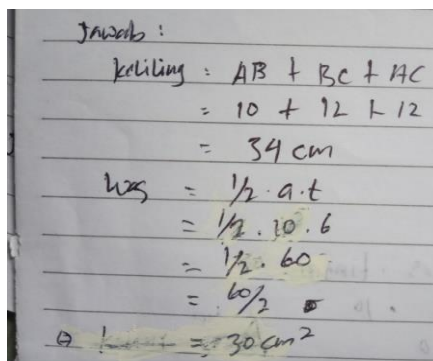 Jawab :
Keliling = AB + BC + AC
= 10 + 12 + 12
= 34 cm
Luas = 1/2 . a.t
= 1/2 . 10 . 6
= 1/2 . 60
= 60/2
= 30 cm²